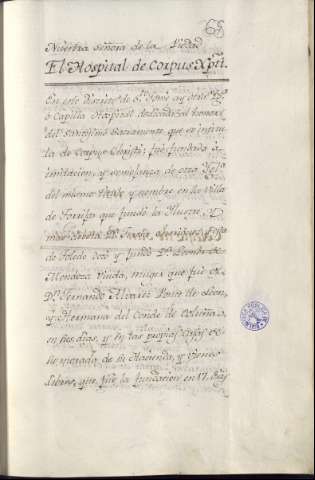 65
Nuestra señora de la Piedad
El Hospital de Corpus Xpti.
En este distrito de Sn. Thome ay otra Ygª.
ò Capilla Hospital dedicada al honor
del Santissimo Sacramento que se intitu
la de Corpus Christi: fue fundada à
imitacion, y semejanza de otra Yglª.
del mismo titulo y nombre en la Villa
de Torrijos que fundò la Ilustre, y
mas devota Dª. Teresa Enrriquez.
de Toledo dotò y fundò Dª. Leonor de
Mendoza Viuda, muger que fuè de
Dn. Fernando Alvarez Ponce de Leon,
y Hermana del Conde de Coruña,
en sus dias, y en sus propias casas de
lo mejorado de su Hacienda, y vienes
libres, que fuè la fundacion en 17. de